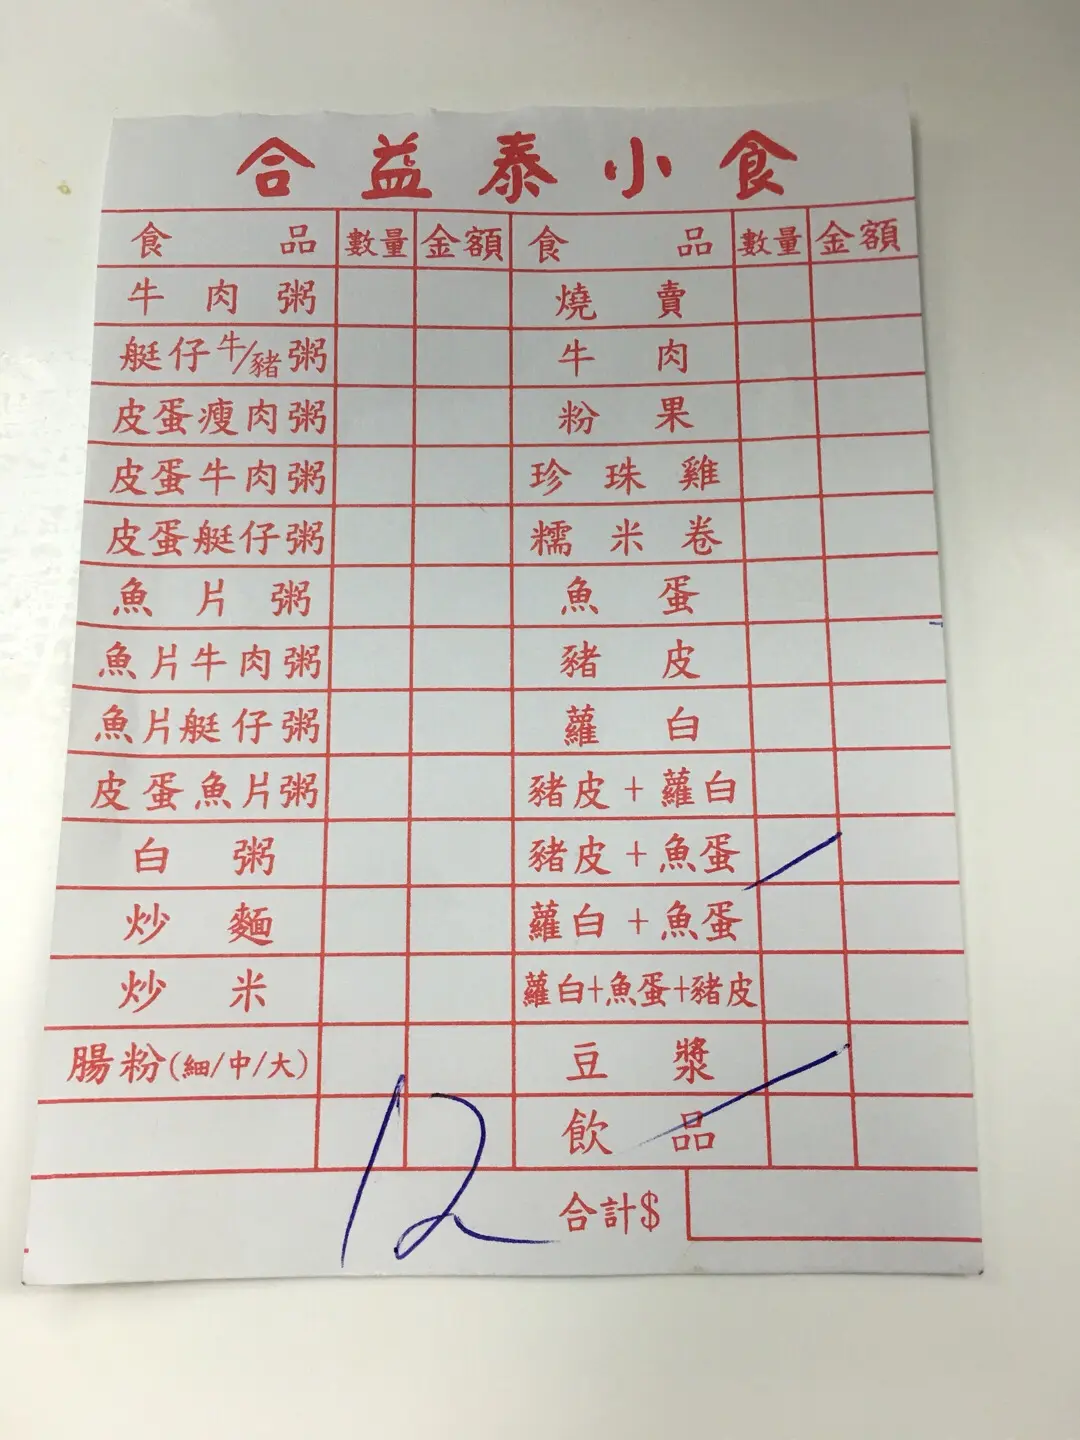 合益泰小食
食品 數量 金額 食品 數量 金額
牛肉粥 燒賣
艇仔牛/豬粥 牛肉
皮蛋瘦肉粥 粉果
皮蛋牛肉粥 珍珠雞
皮蛋艇仔粥 糯米卷
魚片粥 魚蛋
魚片牛肉粥 豬皮
魚片艇仔粥 蘿白
皮蛋魚片粥 豬皮+蘿白
白粥 豬皮+魚蛋
炒麵 蘿白+魚蛋
炒米 蘿白+魚蛋+豬皮
腸粉(細/中/大) 豆漿
飲品
12 合計$